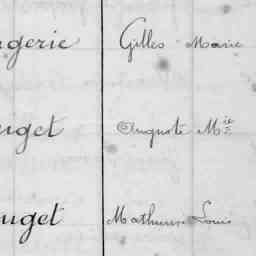 ngerie Gilles Marie
uget Auguste Mie
uget Mathurin Louis